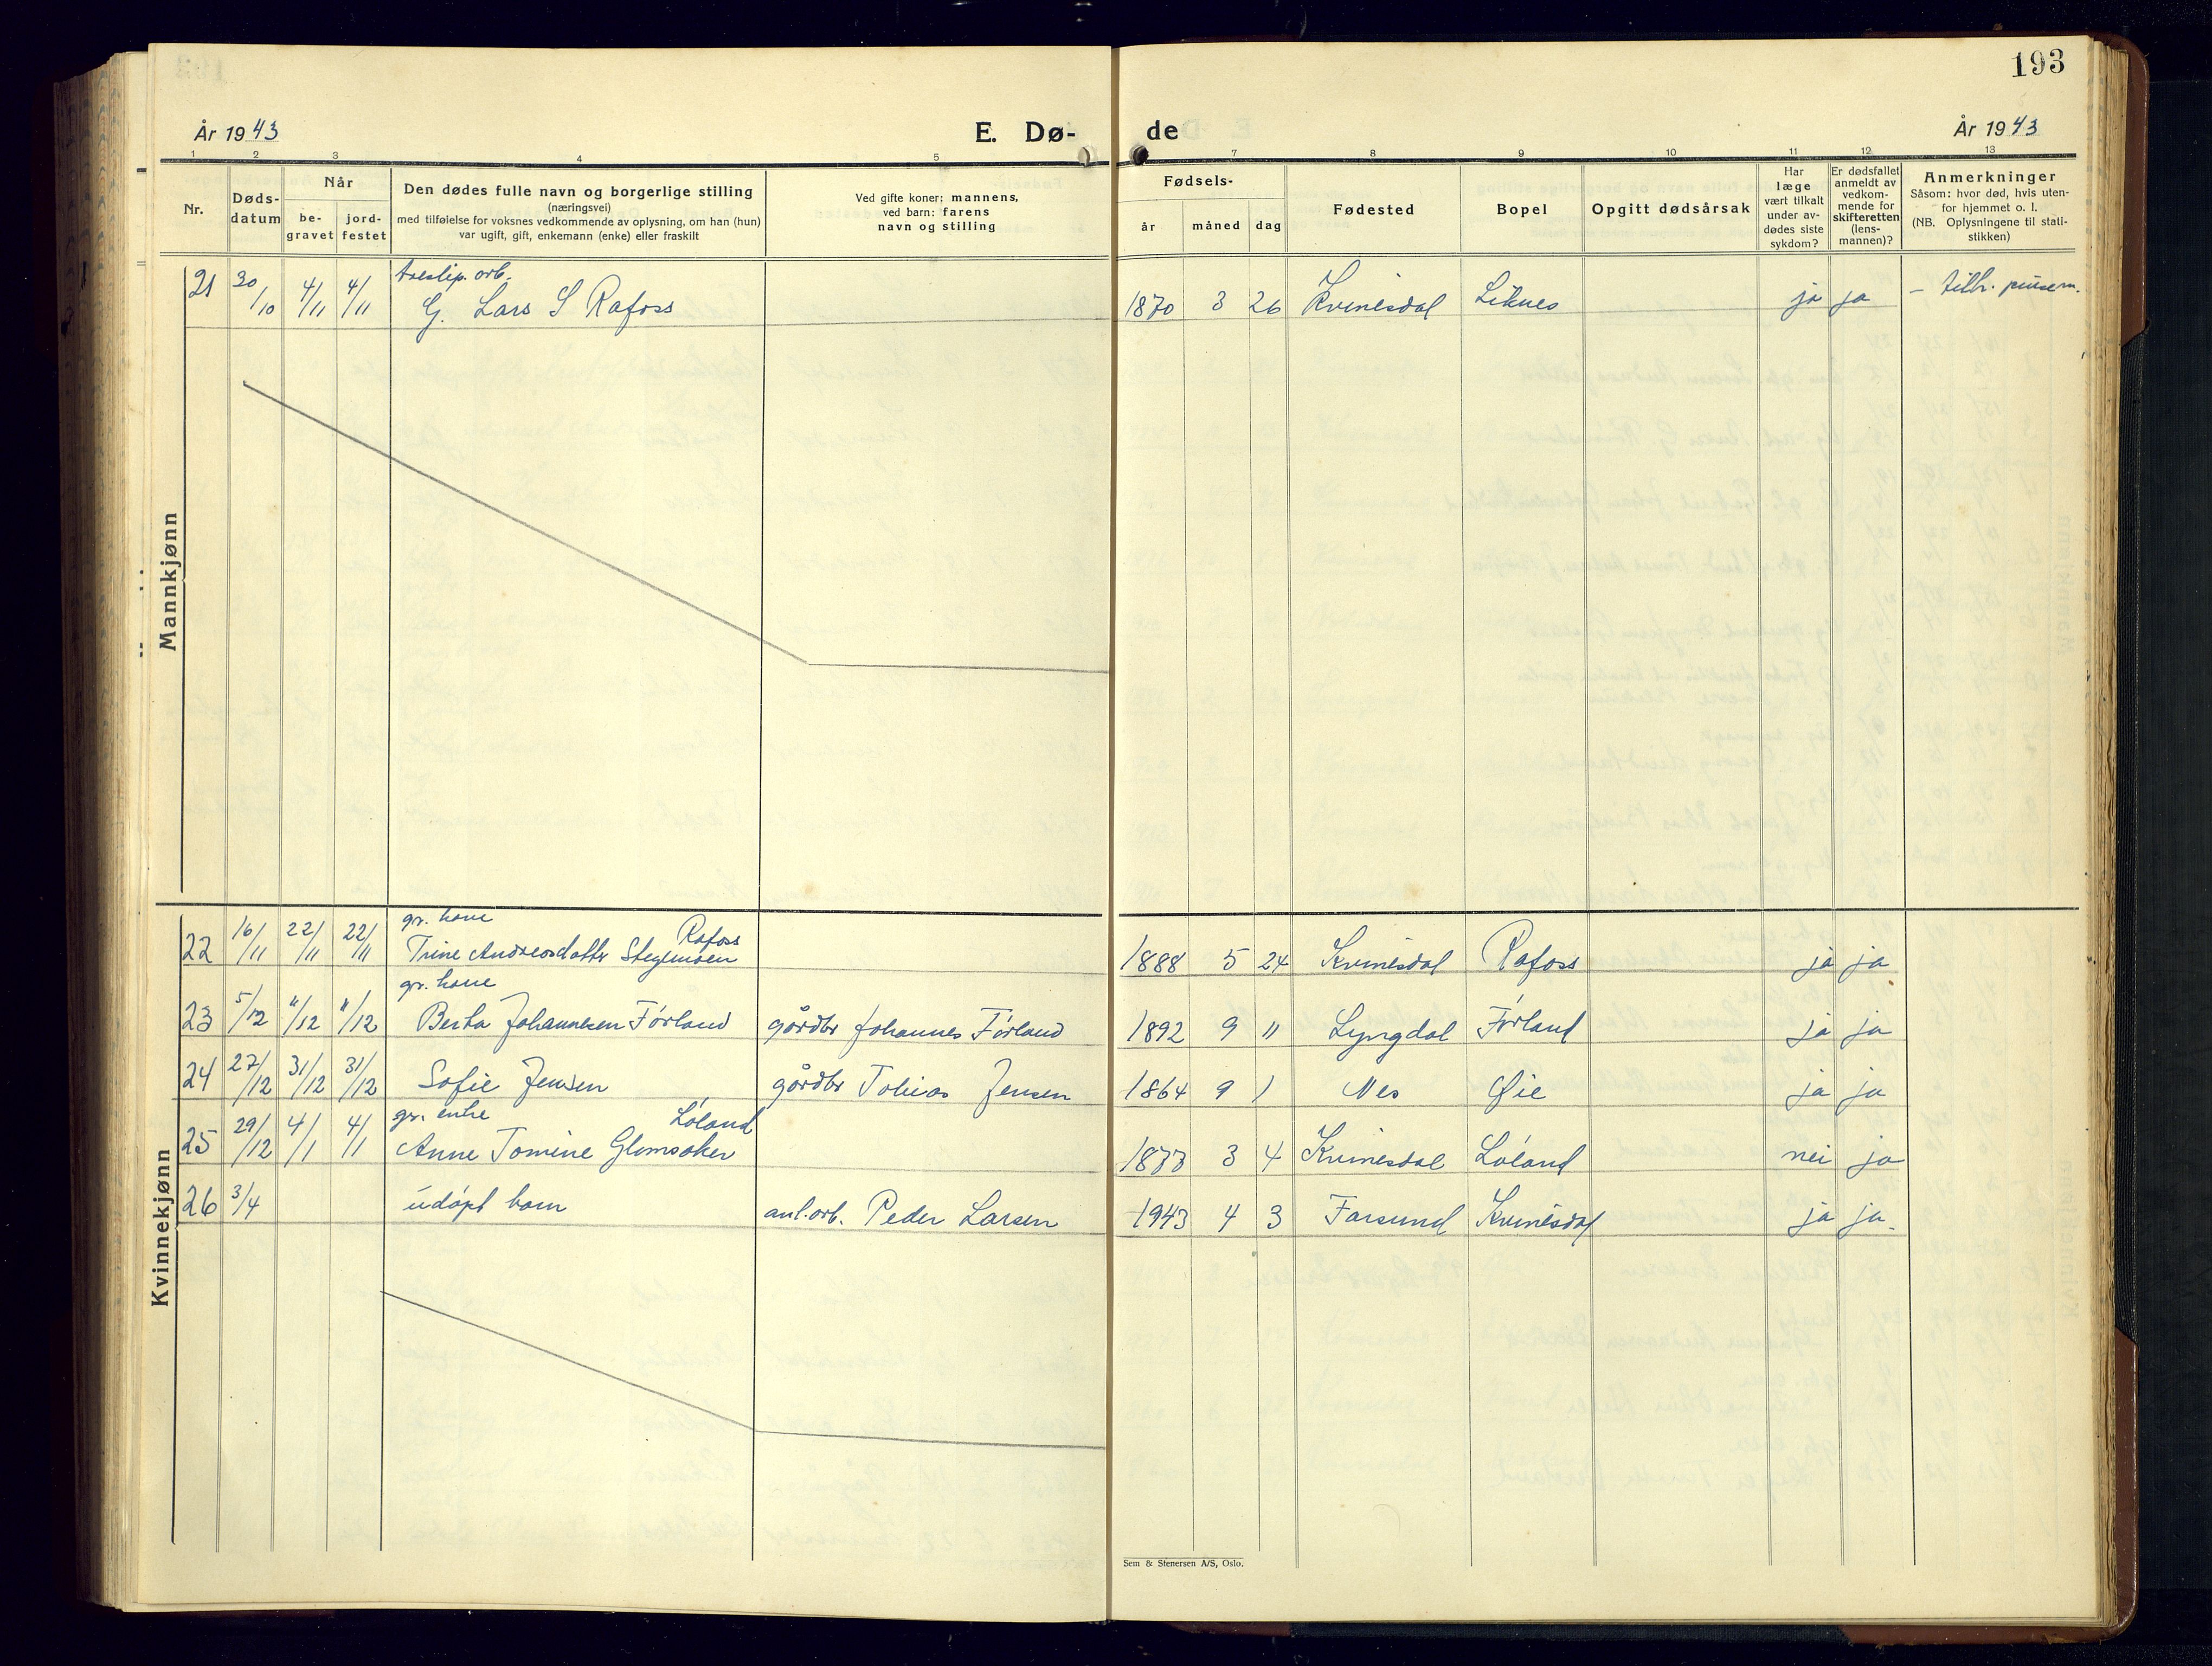 193
År 1943
E. Dø-
de
År 1943
1 2 3 4 5 7 8 9 10 11 12 13
Nr.
Døds-
datum
Når
be-
gravet
jord-
festet
Den dødes fulle navn og borgerlige stilling
(næringsvei)
med tilføielse for voksnes vedkommende av oplysning, om han (hun)
var ugift, gift, enkemann (enke) eller fraskilt
Ved gifte koner: mannens,
ved barn: farens
navn og stilling
Fødsels-
år måned dag
Fødested
Bopel
Opgitt dødsårsak
Har
læge
vært tilkalt
under av-
dødes siste
sykdom?
Er dødsfallet
anmeldt av
vedkom-
mende for
skifteretten
(lens-
mannen)?
Anmerkninger
Såsom: hvor død, hvis uten-
for hjemmet o. l.
(NB. Oplysningene til stati-
stikken)
Mannkjønn
21 30/10 4/11 4/11 G. Lars S Rafoss 1870 3 26 Kvinesdal Liknes ja ja
Kvinnekjønn
gr. kone
22 16/11 22/11 22/11 Trine Andreasdatter Rafoss 1888 5 24 Kvinesdal Rafoss ja ja
gr. kone
23 5/12 11/12 11/12 Berta Johannesen Førland gårdbr Johannes Førland 1892 9 11 Lyngdal Førland ja ja
24 27/12 31/12 31/12 Sofie Jensen gårdbr Tobias Jensen 1864 9 1 Nes Øie ja ja
gr. enke Løland
25 29/12 4/1 4/1 Anne Tomine Glomsaker 1877 3 4 Kvinesdal Løland nei ja
26 3/4 udøpt barn anl.arb. Peder Larsen 1943 4 3 Farsund Kvinesdal ja ja.
Sem & Stenersen A/S, Oslo.